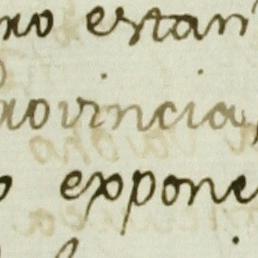 estan
rovincia,
expone